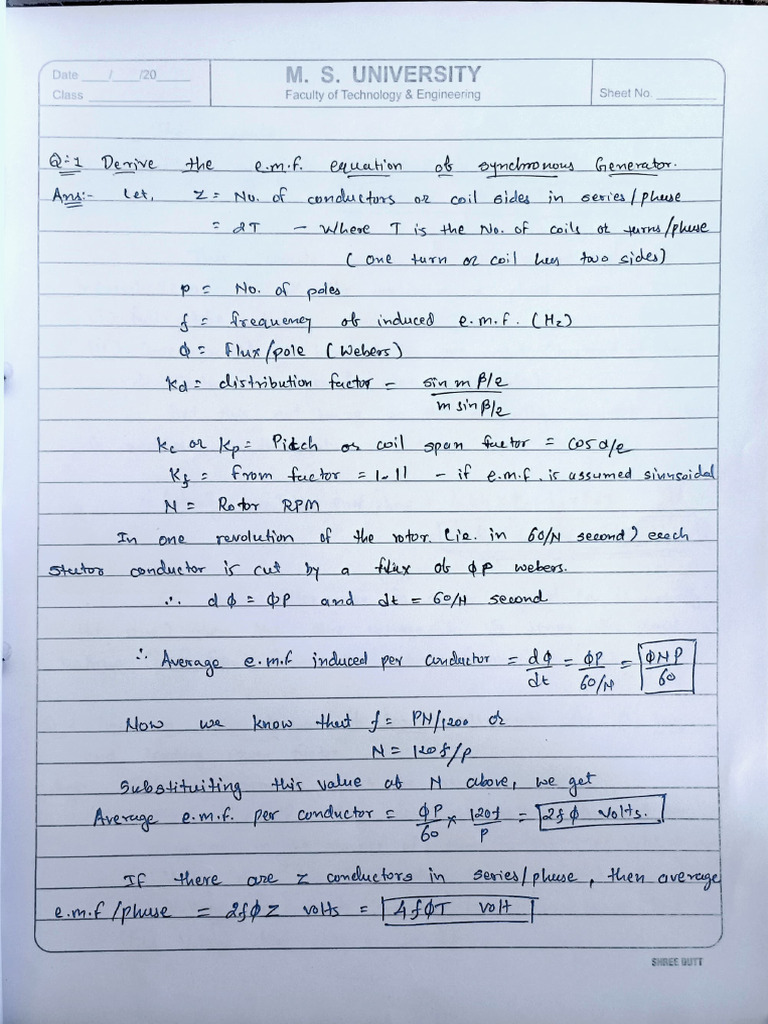 Date ____/____/20____
M. S. UNIVERSITY
Class ____________
Faculty of Technology & Engineering
Sheet No. ________
Q:1 Derive the e.m.f. equation of synchronous Generator.
Ans:- Let, Z = No. of conductors or coil sides in series/phase
= 2T - Where T is the No. of coils or turns/phase
(one turn or coil has two sides)
P = No. of poles
f = frequency of induced e.m.f. (Hz)
Φ = Flux/pole (Webers)
Kd = distribution factor = sin m β/2 / m sin β/2
Kc or Kp = Pitch or coil span factor = cos α/2
Kf = From factor = 1.11 - if e.m.f. is assumed sinusoidal
N = Rotor RPM
In one revolution of the rotor (i.e. in 60/N second) each
stator conductor is cut by a flux of ΦP webers.
∴ dΦ = ΦP and dt = 60/N second
∴ Average e.m.f induced per conductor = dΦ/dt = ΦP / 60/N = ΦNP/60
Now we know that f = PN/1200 or
N = 120f/P
Substituiting this value of N above, we get
Average e.m.f. per conductor = ΦP/60 × 120f/P = 2fΦ volts.
If there are Z conductors in series/phase, then average
e.m.f/phase = 2fΦZ volts = 4fΦT volt
SHREE DUTT